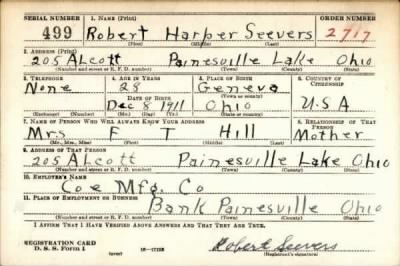 SERIAL NUMBER 1. NAME (Print) ORDER NUMBER
499 Robert Harper Seevers 2717
(First) (Middle) (Last)
2. ADDRESS (Print)
205 Alcott Painesville Lake Ohio
(Number and street or R. F. D. number) (Town) (County) (State)
3. TELEPHONE 4. AGE IN YEARS 5. PLACE OF BIRTH 6. COUNTRY OF CITIZENSHIP
None 28 Geneva
(Town or county)
DATE OF BIRTH
Dec 8 1911 Ohio U.S.A
(Exchange) (Number) (Mo.) (Day) (Yr.) (State or country)
7. NAME OF PERSON WHO WILL ALWAYS KNOW YOUR ADDRESS 8. RELATIONSHIP OF THAT PERSON
Mrs F T Hill Mother
(Mr., Mrs., Miss) (First) (Middle) (Last)
9. ADDRESS OF THAT PERSON
205 Alcott Painesville Lake Ohio
(Number and street or R. F. D. number) (Town) (County) (State)
10. EMPLOYER'S NAME
Coe Mfg. Co
11. PLACE OF EMPLOYMENT OR BUSINESS
Bank Painesville Ohio
(Number and street or R. F. D. number) (Town) (County) (State)
I AFFIRM THAT I HAVE VERIFIED ABOVE ANSWERS AND THAT THEY ARE TRUE.
REGISTRATION CARD
D. S. S. Form 1 (over) 16-17105 Robert Seevers
(Registrant's signature)